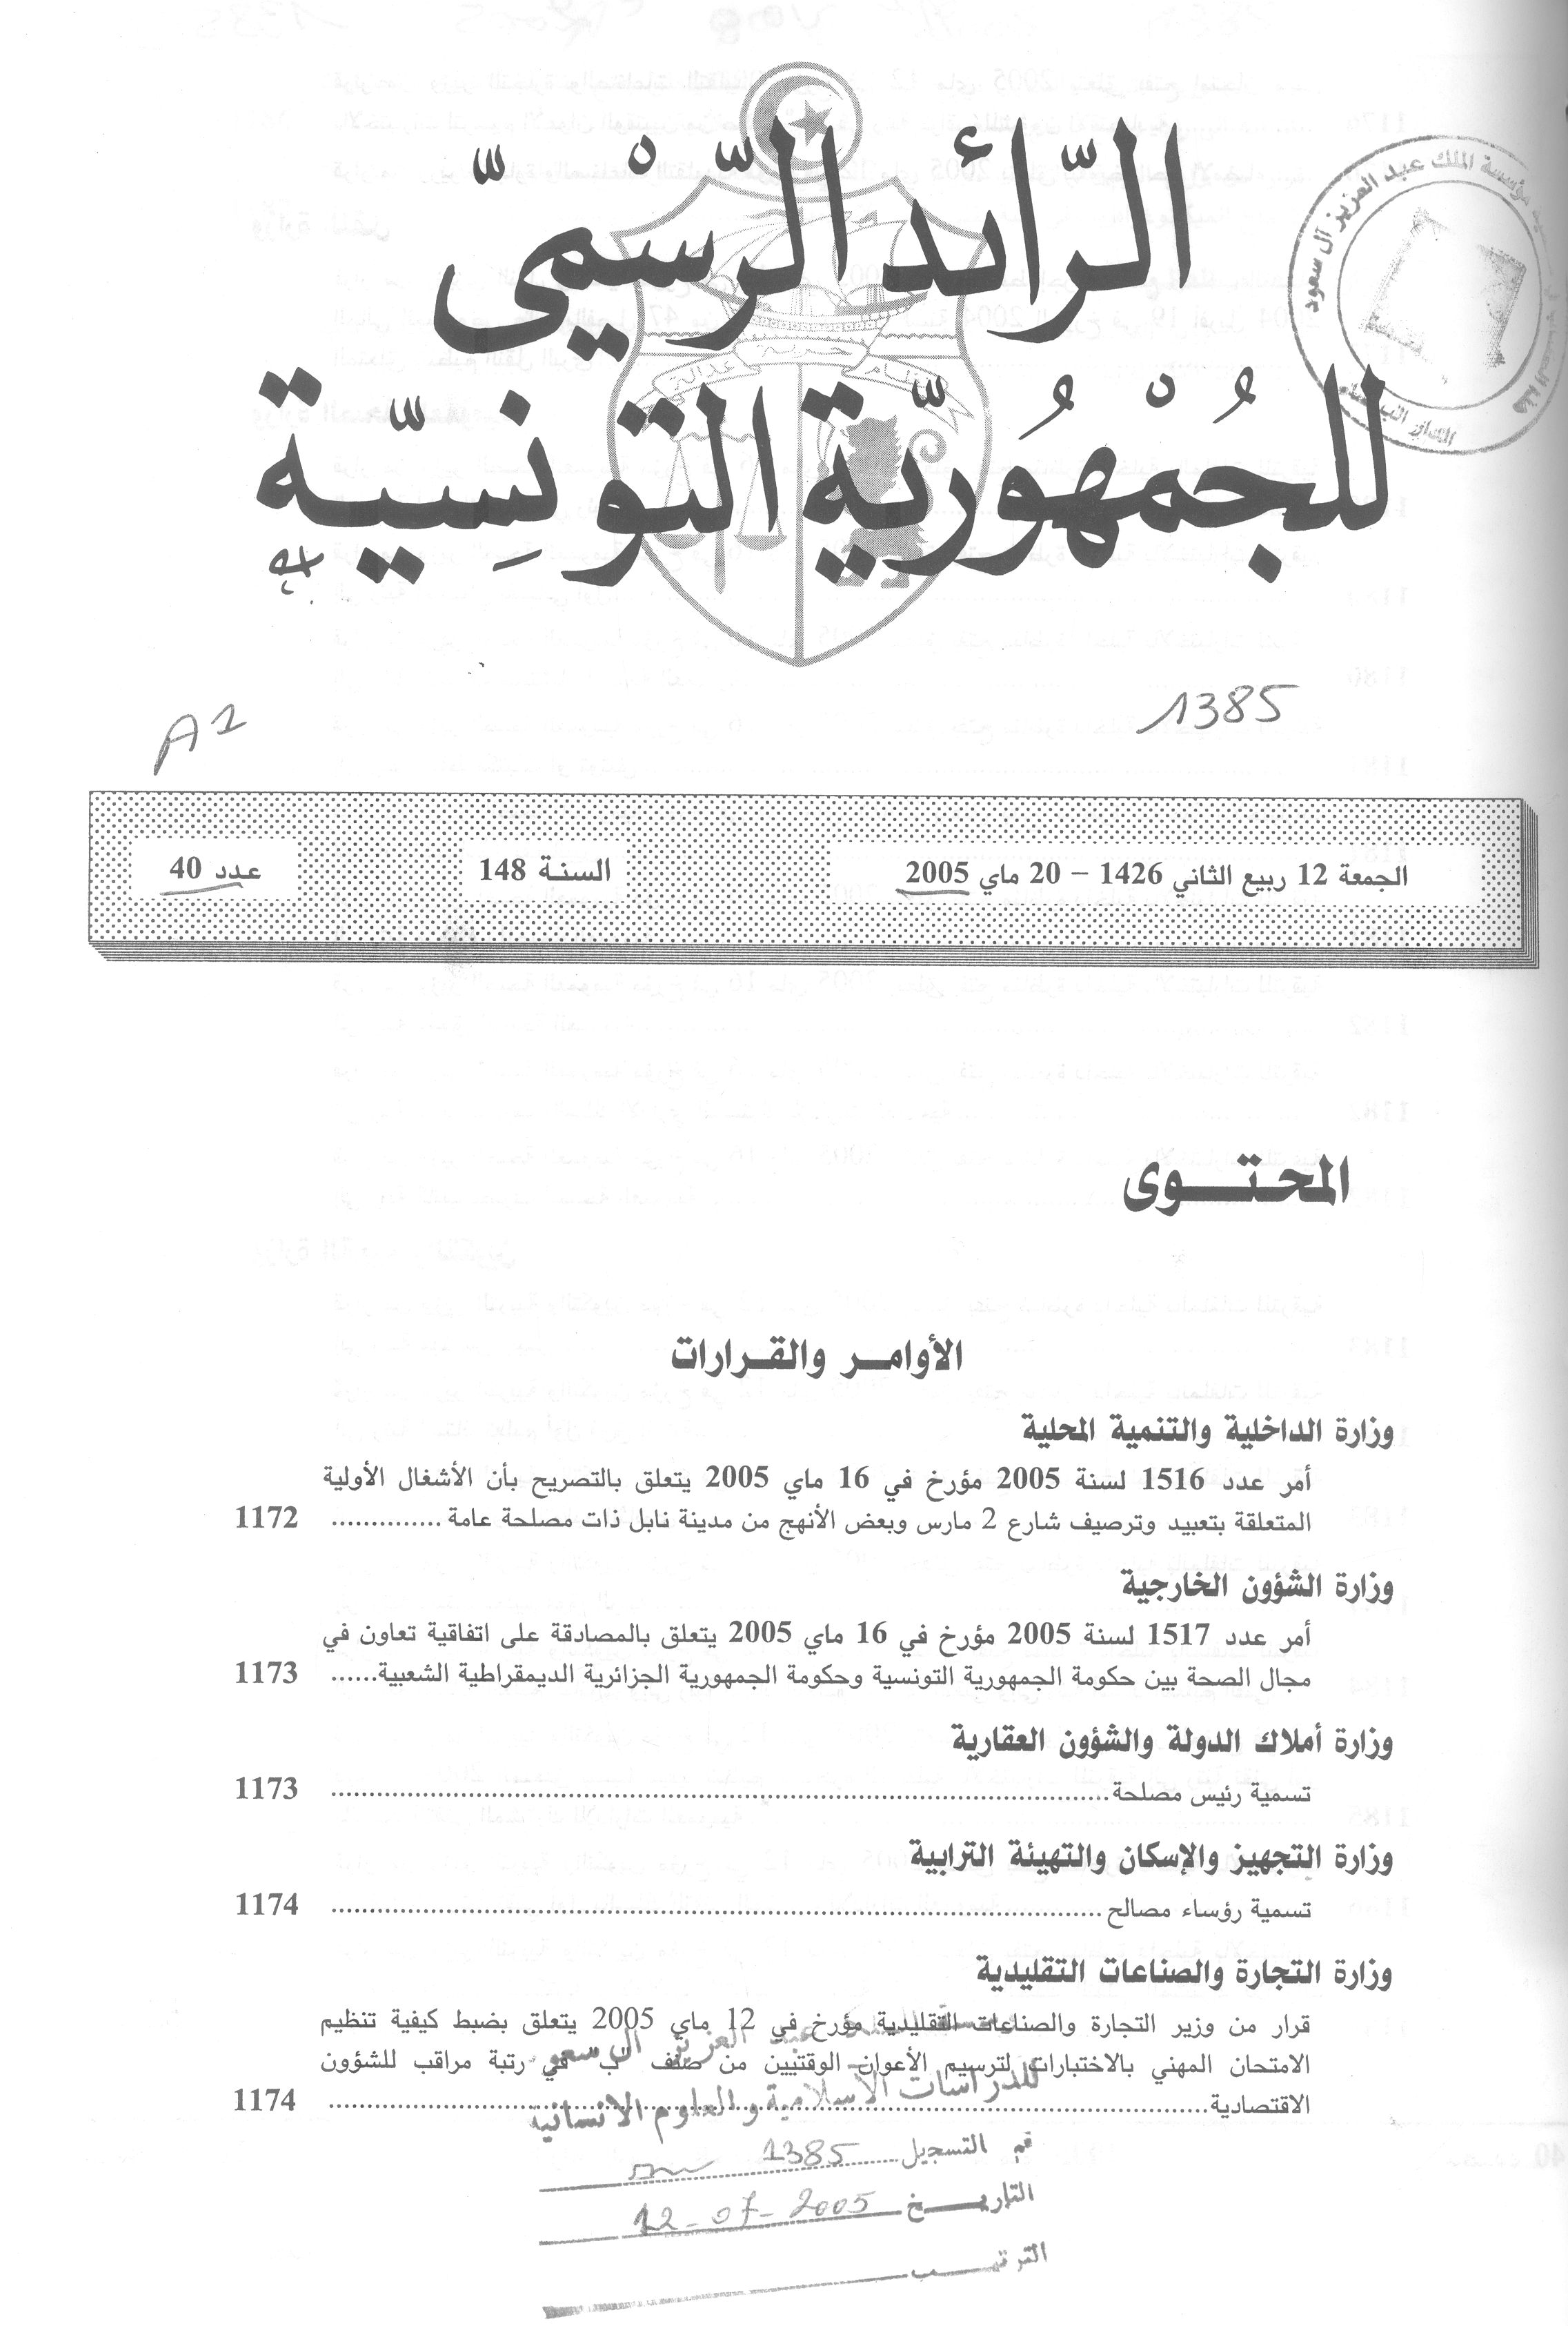 الرّائد الرّسْميّ
للجُمْهُوريّة التّونِسيّة
نظام حرية عدالة
مؤسسة الملك عبد العزيز آل سعود
الدار البيضاء
A1
1385
الجمعة 12 ربيع الثاني 1426 – 20 ماي 2005
السنة 148
عدد 40
المحتوى
الأوامر والقرارات
وزارة الداخلية والتنمية المحلية
أمر عدد 1516 لسنة 2005 مؤرخ في 16 ماي 2005 يتعلق بالتصريح بأن الأشغال الأولية
المتعلقة بتعبيد وترصيف شارع 2 مارس وبعض الأنهج من مدينة نابل ذات مصلحة عامة .............. 1172
وزارة الشؤون الخارجية
أمر عدد 1517 لسنة 2005 مؤرخ في 16 ماي 2005 يتعلق بالمصادقة على اتفاقية تعاون في
مجال الصحة بين حكومة الجمهورية التونسية وحكومة الجمهورية الجزائرية الديمقراطية الشعبية...... 1173
وزارة أملاك الدولة والشؤون العقارية
تسمية رئيس مصلحة........................................ 1173
وزارة التجهيز والإسكان والتهيئة الترابية
تسمية رؤساء مصالح........................................ 1174
وزارة التجارة والصناعات التقليدية
قرار من وزير التجارة والصناعات التقليدية مؤرخ في 12 ماي 2005 يتعلق بضبط كيفية تنظيم
الامتحان المهني بالاختبارات لترسيم الأعوان الوقتيين من صنف "ب" في رتبة مراقب للشؤون
الاقتصادية........................................ 1174
مؤسسة الملك عبد العزيز آل سعود
للدراسات الاسلامية والعلوم الانسانية
رقم التسجيل 1385
التاريخ 12-07-2005
الترتيب